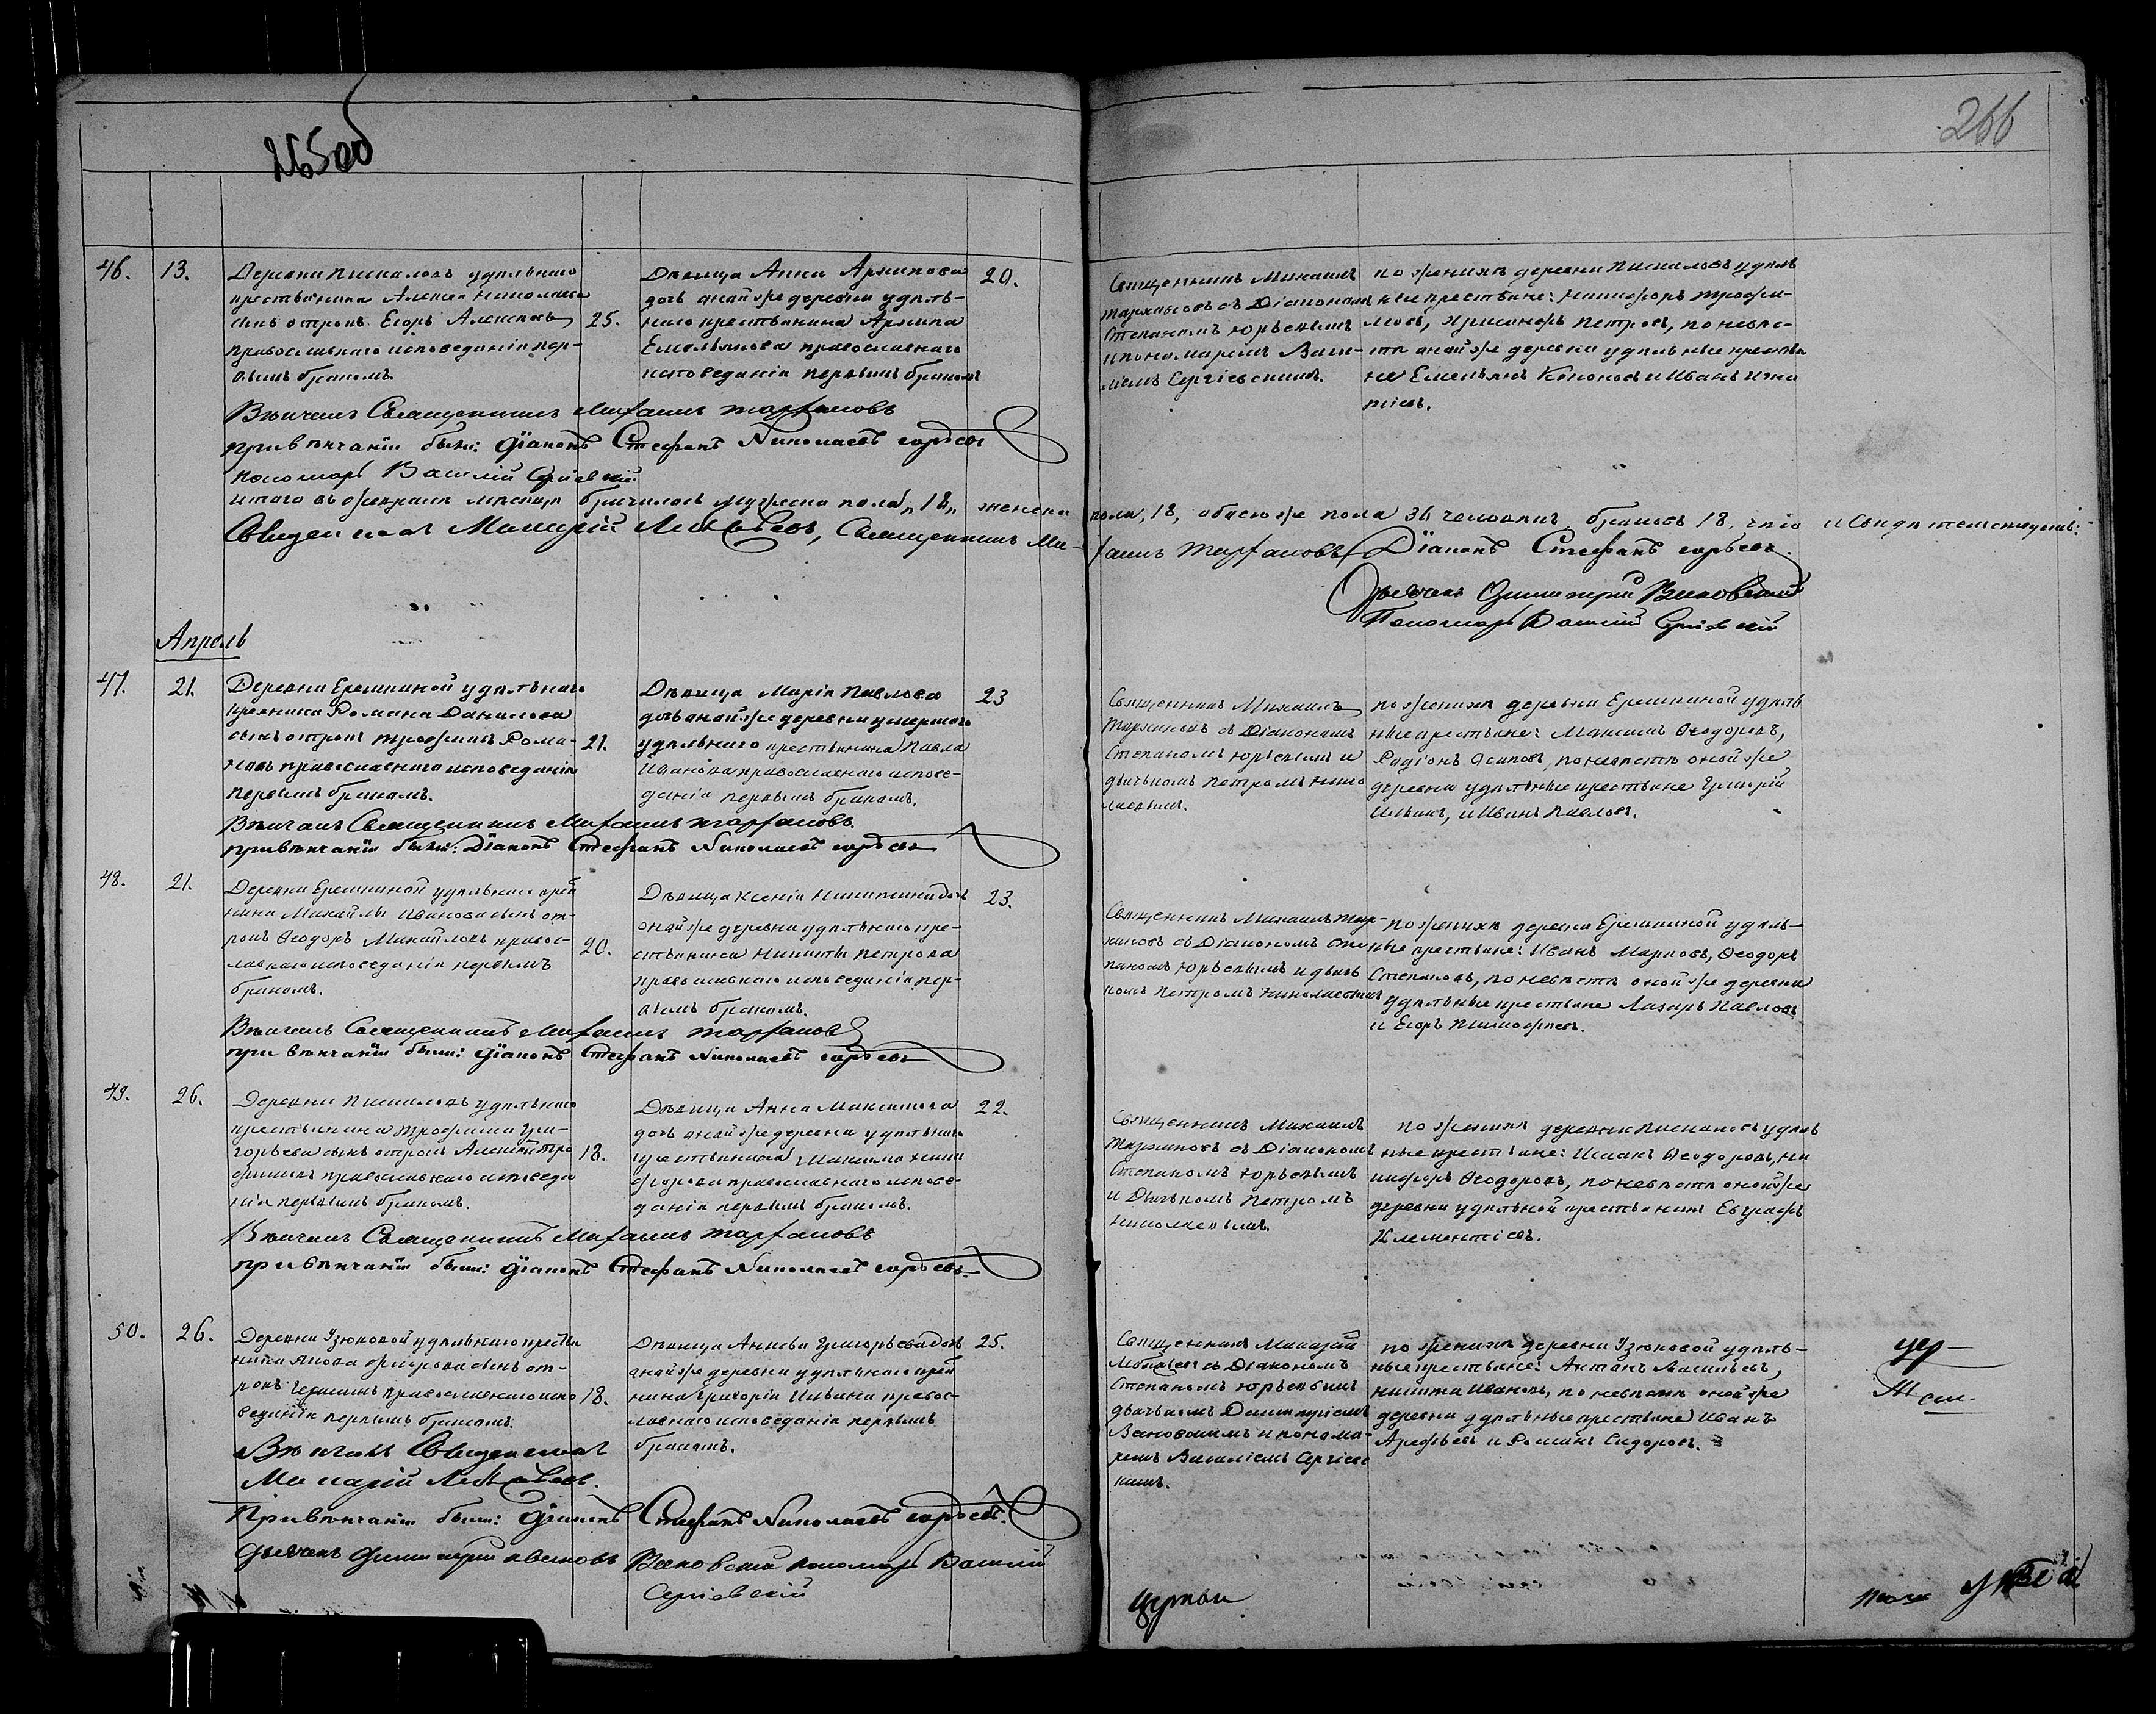 265 об
266
46.
13.
Деревни Пискаловъ удѣльнаго
крестьянина Алексея Николаева
сынъ отрокъ Егоръ Алексѣевъ
православнаго исповеданія пер-
вымъ бракомъ.
25.
Дѣвица Анна Архипова
дочь оной же деревни удѣль-
наго крестьянина Архипа
Емельянова православнаго
исповеданія первымъ бракомъ
20.
Священникъ Михаилъ
Тархановъ съ Діакономъ
Степаномъ Юрьевымъ
и пономаремъ Васи-
ліемъ Сергіевскимъ.
по женихѣ деревни Пискаловъ удѣль
ные крестьяне: Никифоръ Трофи-
мовъ, Хрисанфъ Петровъ, по невѣс-
тѣ оной же деревни удѣльные крестья
не Емельянъ Кононовъ и Иванъ Игна
тіевъ.
Вѣнчалъ Священникъ Михаилъ Тархановъ
при вѣнчаніи были: Діаконъ Стефанъ Николаевъ Юрьевъ
пономарь Василій Сергіевскій
итого въ феврале месяце бричилось мужеска пола „18„ женска пола, 18, обоего же пола 36 человекъ, браковъ 18, что и свидѣтельствуемъ:
Священникъ Макарій Лебедевъ, Священникъ Ми-
хаилъ Тархановъ Діаконъ Стефанъ Юрьевъ.
Дьячекъ Димитрій Вяновскій
Пономарь Василій Сергіевскій
Апрель
47.
21.
Деревни Еремкиной удѣльнаго
крестьянина Романа Данилова
сынъ отрокъ Трофимъ Рома-
новъ православнаго исповеданія
первымъ бракомъ.
21.
Дѣвица Марія Павлова
дочь оной же деревни умершаго
удѣльнаго крестьянина Павла
Иванова православнаго испове-
данія первымъ бракомъ.
23
Священникъ Михаилъ
Тархановъ съ Діакономъ
Степаномъ Юрьевымъ и
дьячкомъ Петромъ Нико
лаевымъ.
по женихѣ деревни Еремкиной удѣль
ные крестьяне: Максимъ Ѳеодоровъ,
Родіонъ Осиповъ, по невѣстѣ оной же
деревни удѣльные крестьяне Григорій
Ильинъ, и Иванъ Павловъ.
Вѣнчалъ Священникъ Михаилъ Тархановъ.
при вѣнчаніи были: Діаконъ Стефанъ Николаевъ Юрьевъ
48.
21.
Деревни Еремкиной удѣльнаго крестья
нина Михайлы Иванова сынъ от-
рокъ Ѳеодоръ Михайловъ правос-
лавнаго исповеданія первымъ
бракомъ.
20.
Дѣвица Ксенія Никитина дочь
оной же деревни удѣльнаго кре-
стьянина Никиты Петрова
православнаго исповеданія пер-
вымъ бракомъ.
23.
Священникъ Михаилъ Тар-
хановъ съ Діакономъ Сте
паномъ Юрьевымъ и дьяч
комъ Петромъ Николаевымъ
по женихѣ деревни Еремкиной удѣль-
ные крестьяне: Иванъ Марковъ, Ѳеодоръ
Степановъ, по невѣстѣ оной же деревни
удѣльные крестьяне Лазарь Павловъ
и Егоръ Тимофеевъ.
Вѣнчалъ Священникъ Михаилъ Тархановъ
при вѣнчаніи были: Діаконъ Стефанъ Николаевъ Юрьевъ
49.
26.
Деревни Пискаловъ удѣльнаго
крестьянина Трофима Гри-
горьева сынъ отрокъ Алексей Тро
фимовъ православнаго исповеда
нія первымъ бракомъ.
18.
Дѣвица Анна Максимова
дочь оной же деревни удѣльнаго
крестьянина Максима Ники
форова православнаго испове-
данія первымъ бракомъ.
22.
Священникъ Михаилъ
Тархановъ съ Діакономъ
Степаномъ Юрьевымъ
и Дьячкомъ Петромъ
Николаевымъ.
по женихѣ деревни Пискаловъ удѣль
ные крестьяне: Исаакъ Ѳеодоровъ, Ни
кифоръ Ѳеодоровъ, по невѣстѣ оной же
деревни удѣльной крестьянинъ Евграфъ
Клементіевъ.
Вѣнчалъ Священникъ Михаилъ Тархановъ
при вѣнчаніи были: Діаконъ Стефанъ Николаевъ Юрьевъ.
50.
26.
Деревни Узюковой удѣльнаго крестья
нина Якова сынъ от-
рокъ православнаго испо
веданія первымъ бракомъ.
18.
Дѣвица Анисья Григорьева дочь
оной же деревни удѣльнаго крестья
нина Григорія Ильина правос-
лавнаго исповеданія первымъ
бракомъ.
25.
Священникъ Макарій
Лебедевъ съ Діакономъ
Степаномъ Юрьевымъ
дьячкомъ Димитріемъ
Вяновскимъ и понома-
ремъ Василіемъ Сергіевс
кимъ.
по женихѣ деревни Узюковой удѣль-
ные крестьяне: Антонъ Васильевъ,
Никита Ивановъ, по невѣстѣ оной же
деревни удѣльные крестьяне Иванъ
Арефьевъ и Романъ Сидоровъ.
Вѣнчалъ Священникъ
Макарій Лебедевъ.
При вѣнчаніи были: Діаконъ Стефанъ Николаевъ Юрьевъ.
Дьячекъ Димитрій Вяновскій пономарь Василій
Сергіевскій
церкви